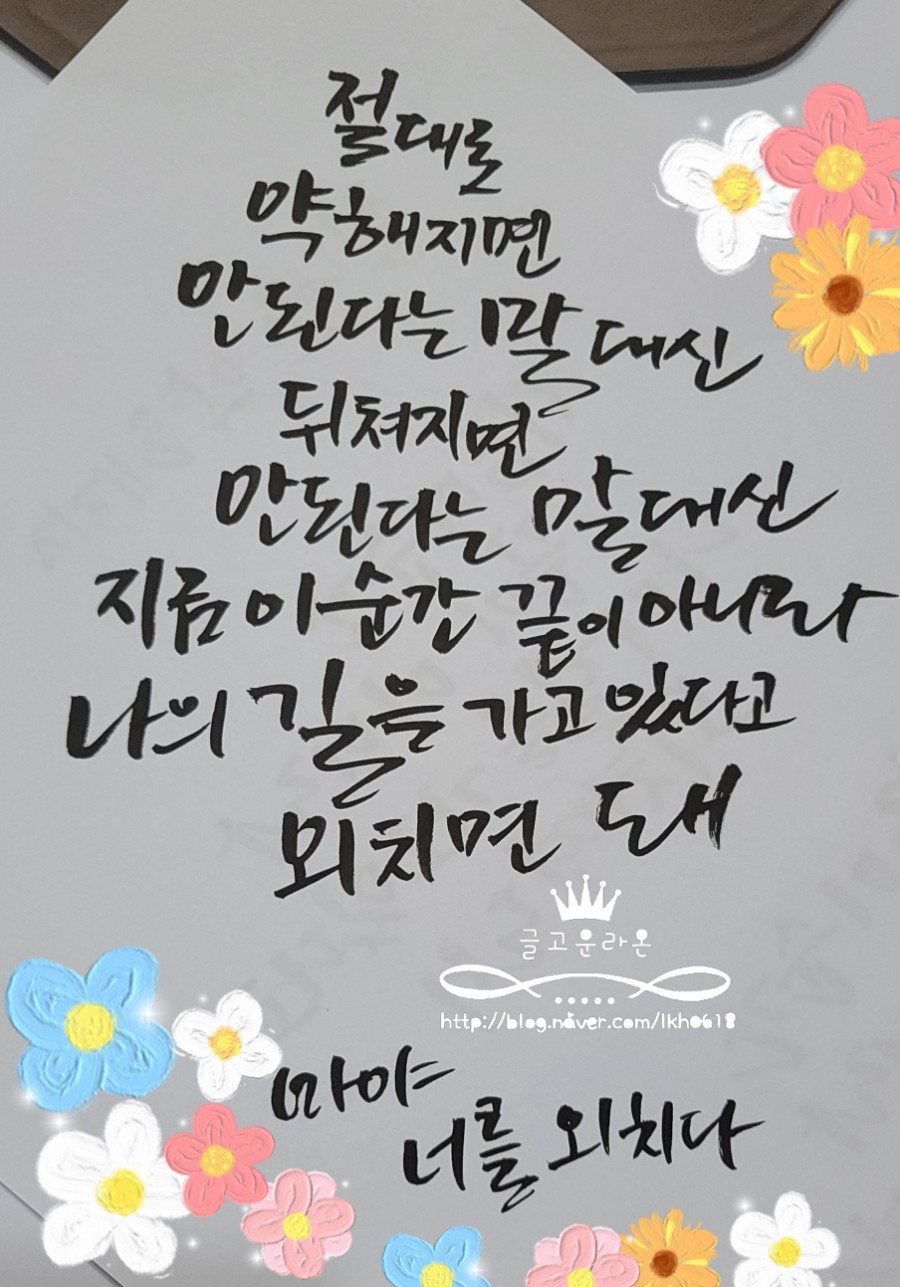 절대로
약해지면
안된다는 말 대신
뒤쳐지면
안된다는 말대신
지금 이 순간 끝이 아니라
나의 길을 가고 있다고
외치면 돼
글고운라온
http://blog.naver.com/lkh0618
마야
너를 외치다